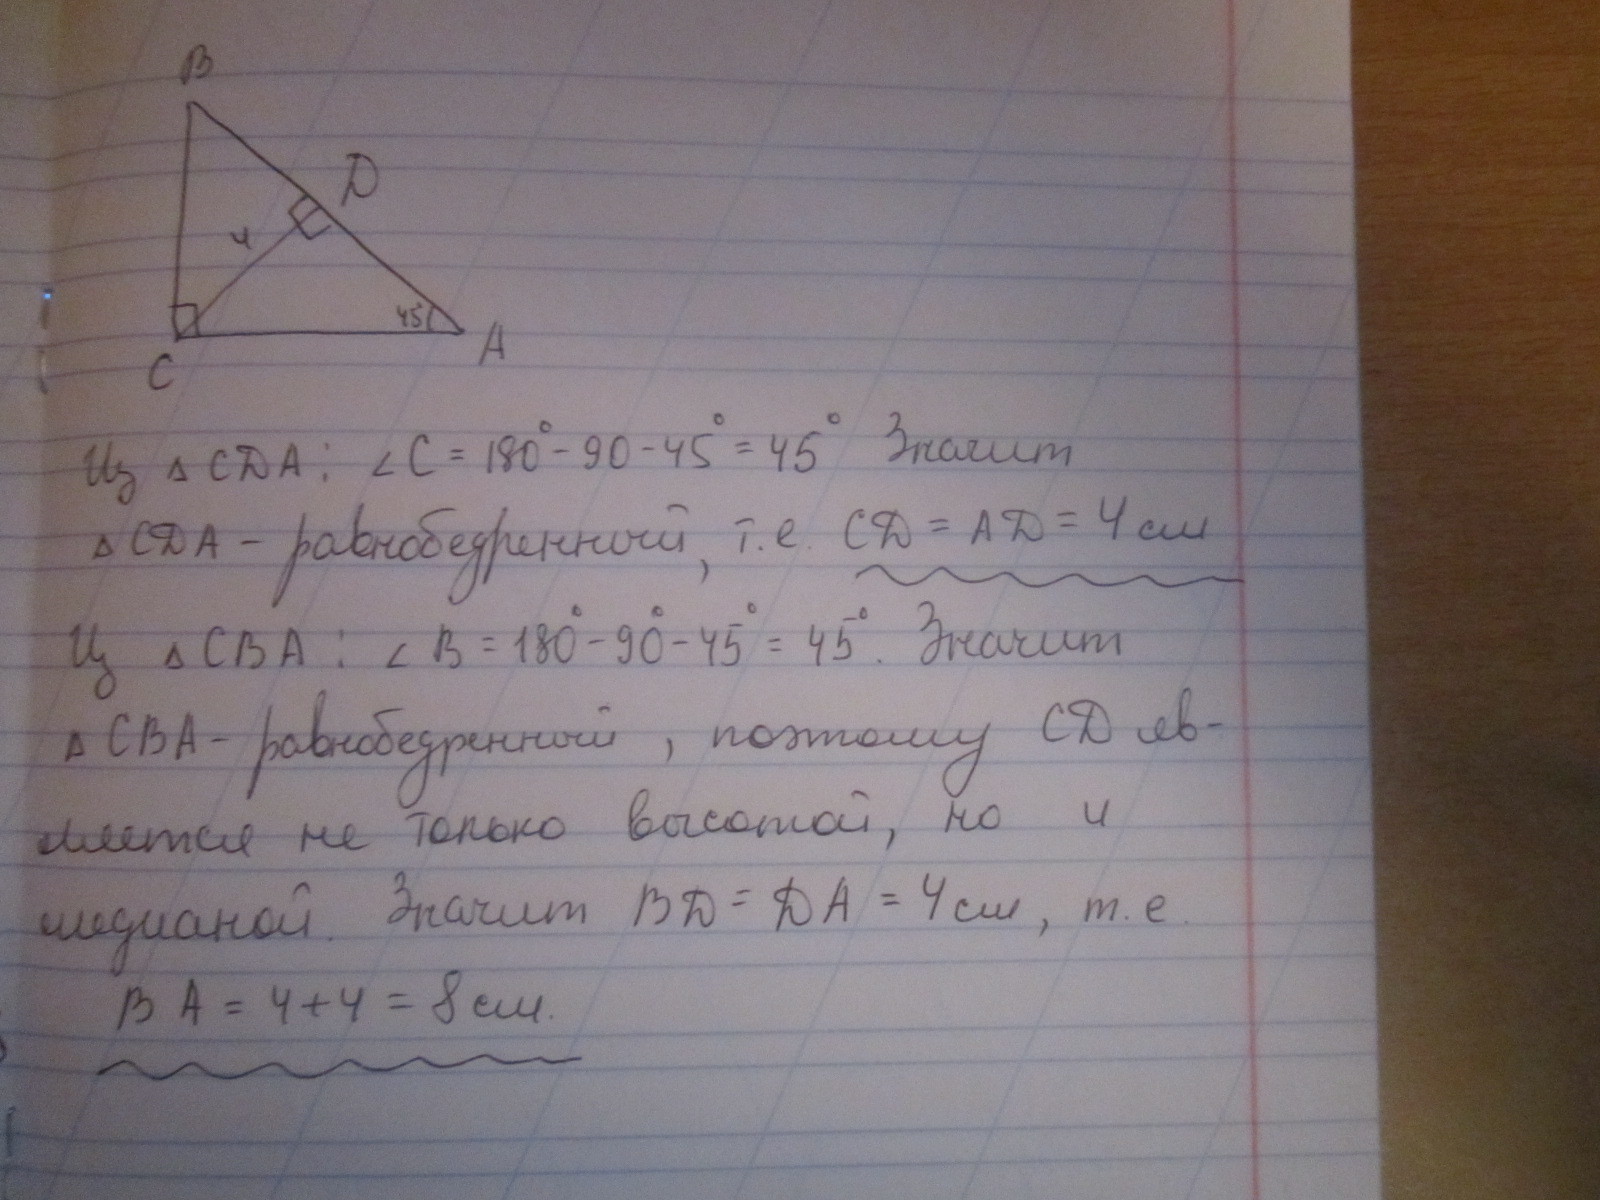 B
D
4
45°
C
A
Из △ CDA: ∠C = 180° - 90 - 45° = 45° Значит
△ CDA - равнобедренный, т.е. CD = AD = 4 см
Из △ CBA: ∠B = 180° - 90° - 45° = 45°. Значит
△ CBA - равнобедренный, поэтому CD яв-
ляется не только высотой, но и
медианой. Значит BD = DA = 4 см, т.е.
BA = 4 + 4 = 8 см.